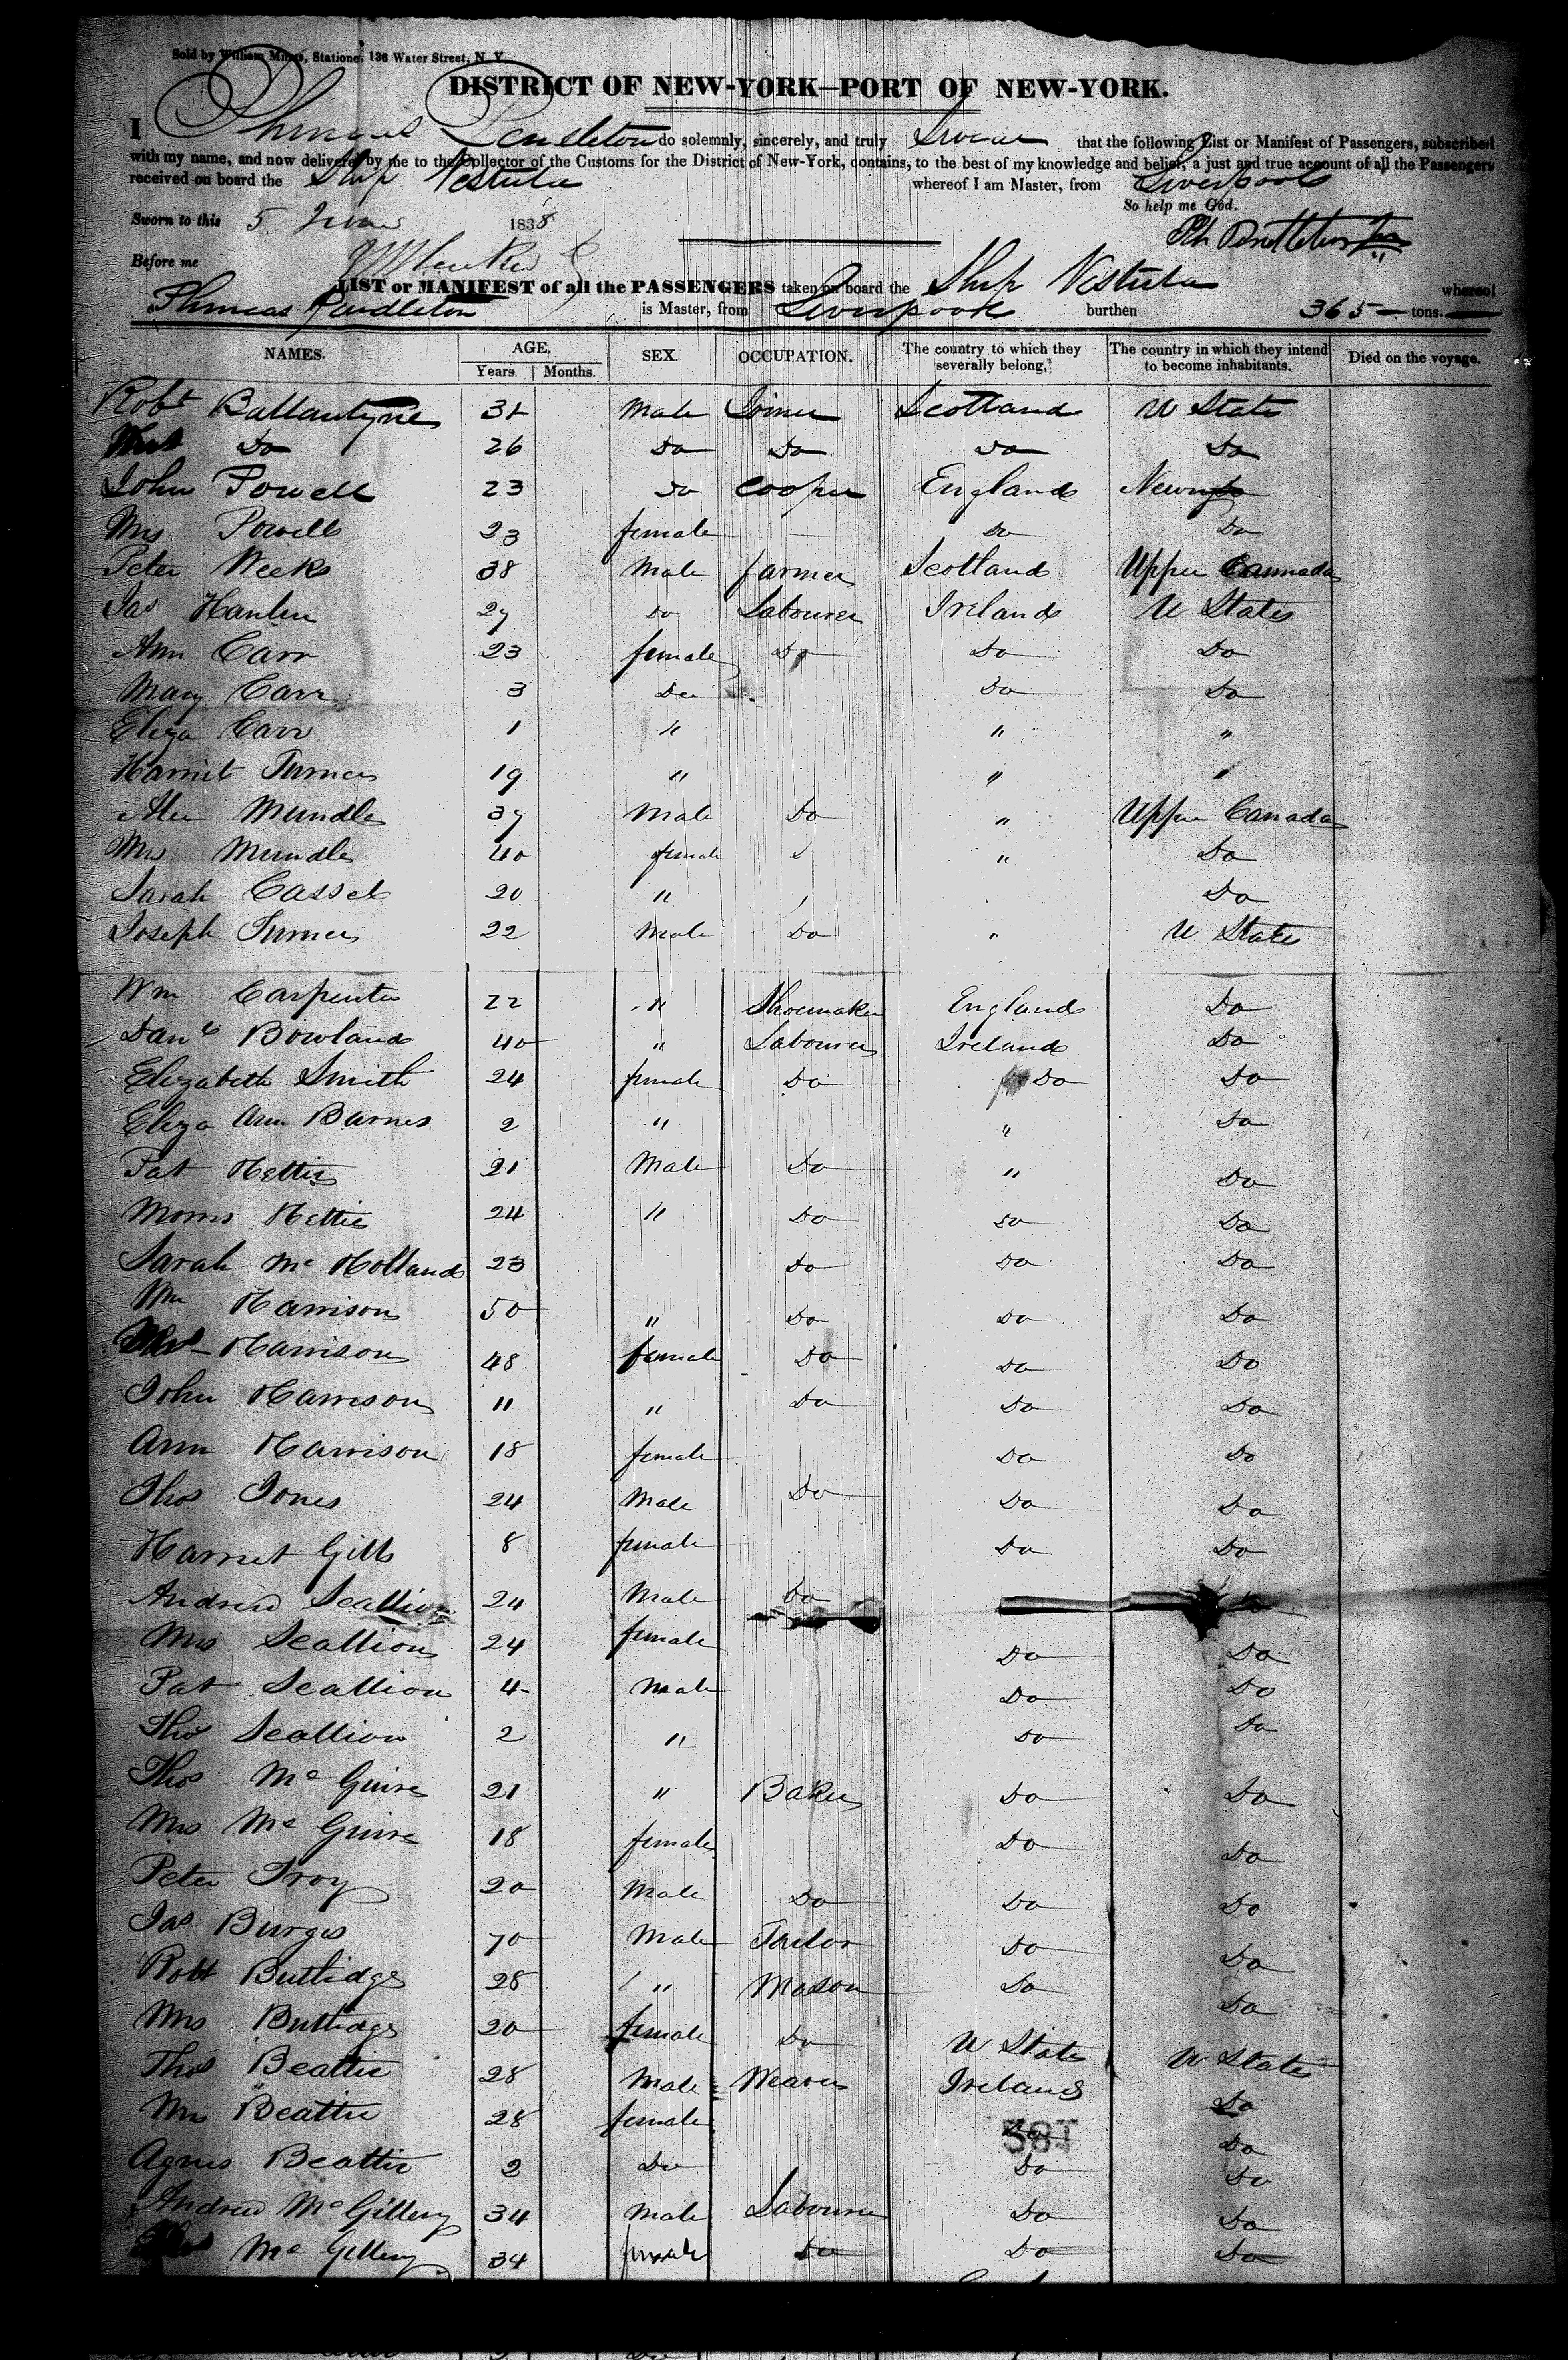 Sold by William Minns, Stationer, 136 Water Street, N. Y.
DISTRICT OF NEW-YORK—PORT OF NEW-YORK.
I Phineas Pendleton do solemnly, sincerely, and truly Swear that the following List or Manifest of Passengers, subscribed
with my name, and now delivered by me to the Collector of the Customs for the District of New-York, contains, to the best of my knowledge and belief, a just and true account of all the Passengers
received on board the Ship Vistula whereof I am Master, from Liverpool
So help me God.
Sworn to this 5 June 1838
Ph Pendleton Jr
Before me
LIST or MANIFEST of all the PASSENGERS taken on board the Ship Vistula whereof
Phineas Pendleton is Master, from Liverpool burthen 365 tons.
NAMES. AGE. SEX. OCCUPATION. The country to which they severally belong, The country in which they intend to become inhabitants. Died on the voyage.
Years Months.
Robt Ballantyne 32 Male Joiner Scotland U State
Mrs Do 26 Do Do Do Do
John Powell 23 Do Cooper England
Mrs Powell 23 female Do Do
Peter Weeks 38 Male farmer Scotland Upper Cannada
Jas Hanlen 27 Do Labourer Ireland U States
Ann Carr 23 female Do Do Do
Mary Carr 3 Do Do Do
Eliza Carr 1 " " "
Harriet Turner 19 " " "
Alex Mundle 37 Male Do " Upper Canada
Mrs Mundle 40 female " Do
Sarah Cassel 20 " Do
Joseph Turner 22 Male Do " U State
Wm Carpenter 22 " Shoemaker England Do
Danl Bowland 40 " Labourer Ireland Do
Elizabeth Smith 24 female Do Do Do
Eliza Ann Barnes 2 " " Do
Pat Hettie 21 Male Do " Do
Morris Hettie 24 " Do Do Do
Sarah Mc Holland 23 Do Do Do
Wm Harrison 50 " Do Do Do
Mrs Harrison 48 female Do Do Do
John Harrison 11 " Do Do Do
Ann Harrison 18 female Do Do
Thos Jones 24 Male Do Do Do
Harriet Gill 8 female Do Do
Andrew Scallion 24 Male Do
Mrs Scallion 24 female Do Do
Pat Scallion 4 Male Do Do
Thos Scallion 2 " Do Do
Thos Mc Guire 21 " Baker Do Do
Mrs Mc Guire 18 female Do Do
Peter Troy 20 Male Do Do Do
Jas Burges 70 Male Tailor Do Do
Robt Buttidge 28 " Mason Do Do
Mrs Buttidge 20 female Do U State U State
Thos Beattie 28 Male Weaver Ireland Do
Mrs Beattie 28 female Do
Agnes Beattie 2 Do Do Do
Andrew Mc Gillery 34 Male Labourer Do Do
Mc Gillery 34 female Do Do Do